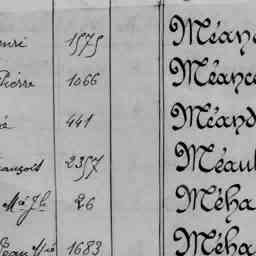 enri 1575 Méan
Pierre 1066 Méanc
441 Méand
rançois 2357 Méaul
Mie Jh 26 Méha
Jean 1683 Méha